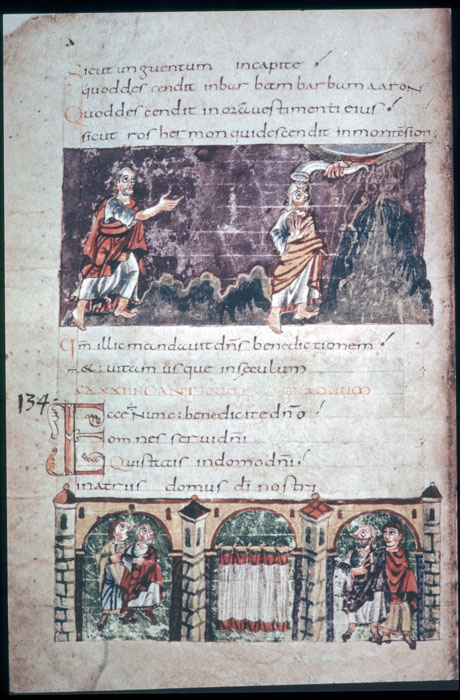 Sicut unguentum incapite!
quoddescendit inbarbam barbum aaron
Quoddescendit inoravestimenti eius!
sicut ros hermon quidescendit inmontesion;
Qm illic mandavit dns benedictionem!
&uitam usque insæculum
CXXXIII CANTICUM GRADUUM
134
Ecce Nunc benedicite dno!
omnes servi dni
Quistatis indomo dni!
inatriis domus di nostri